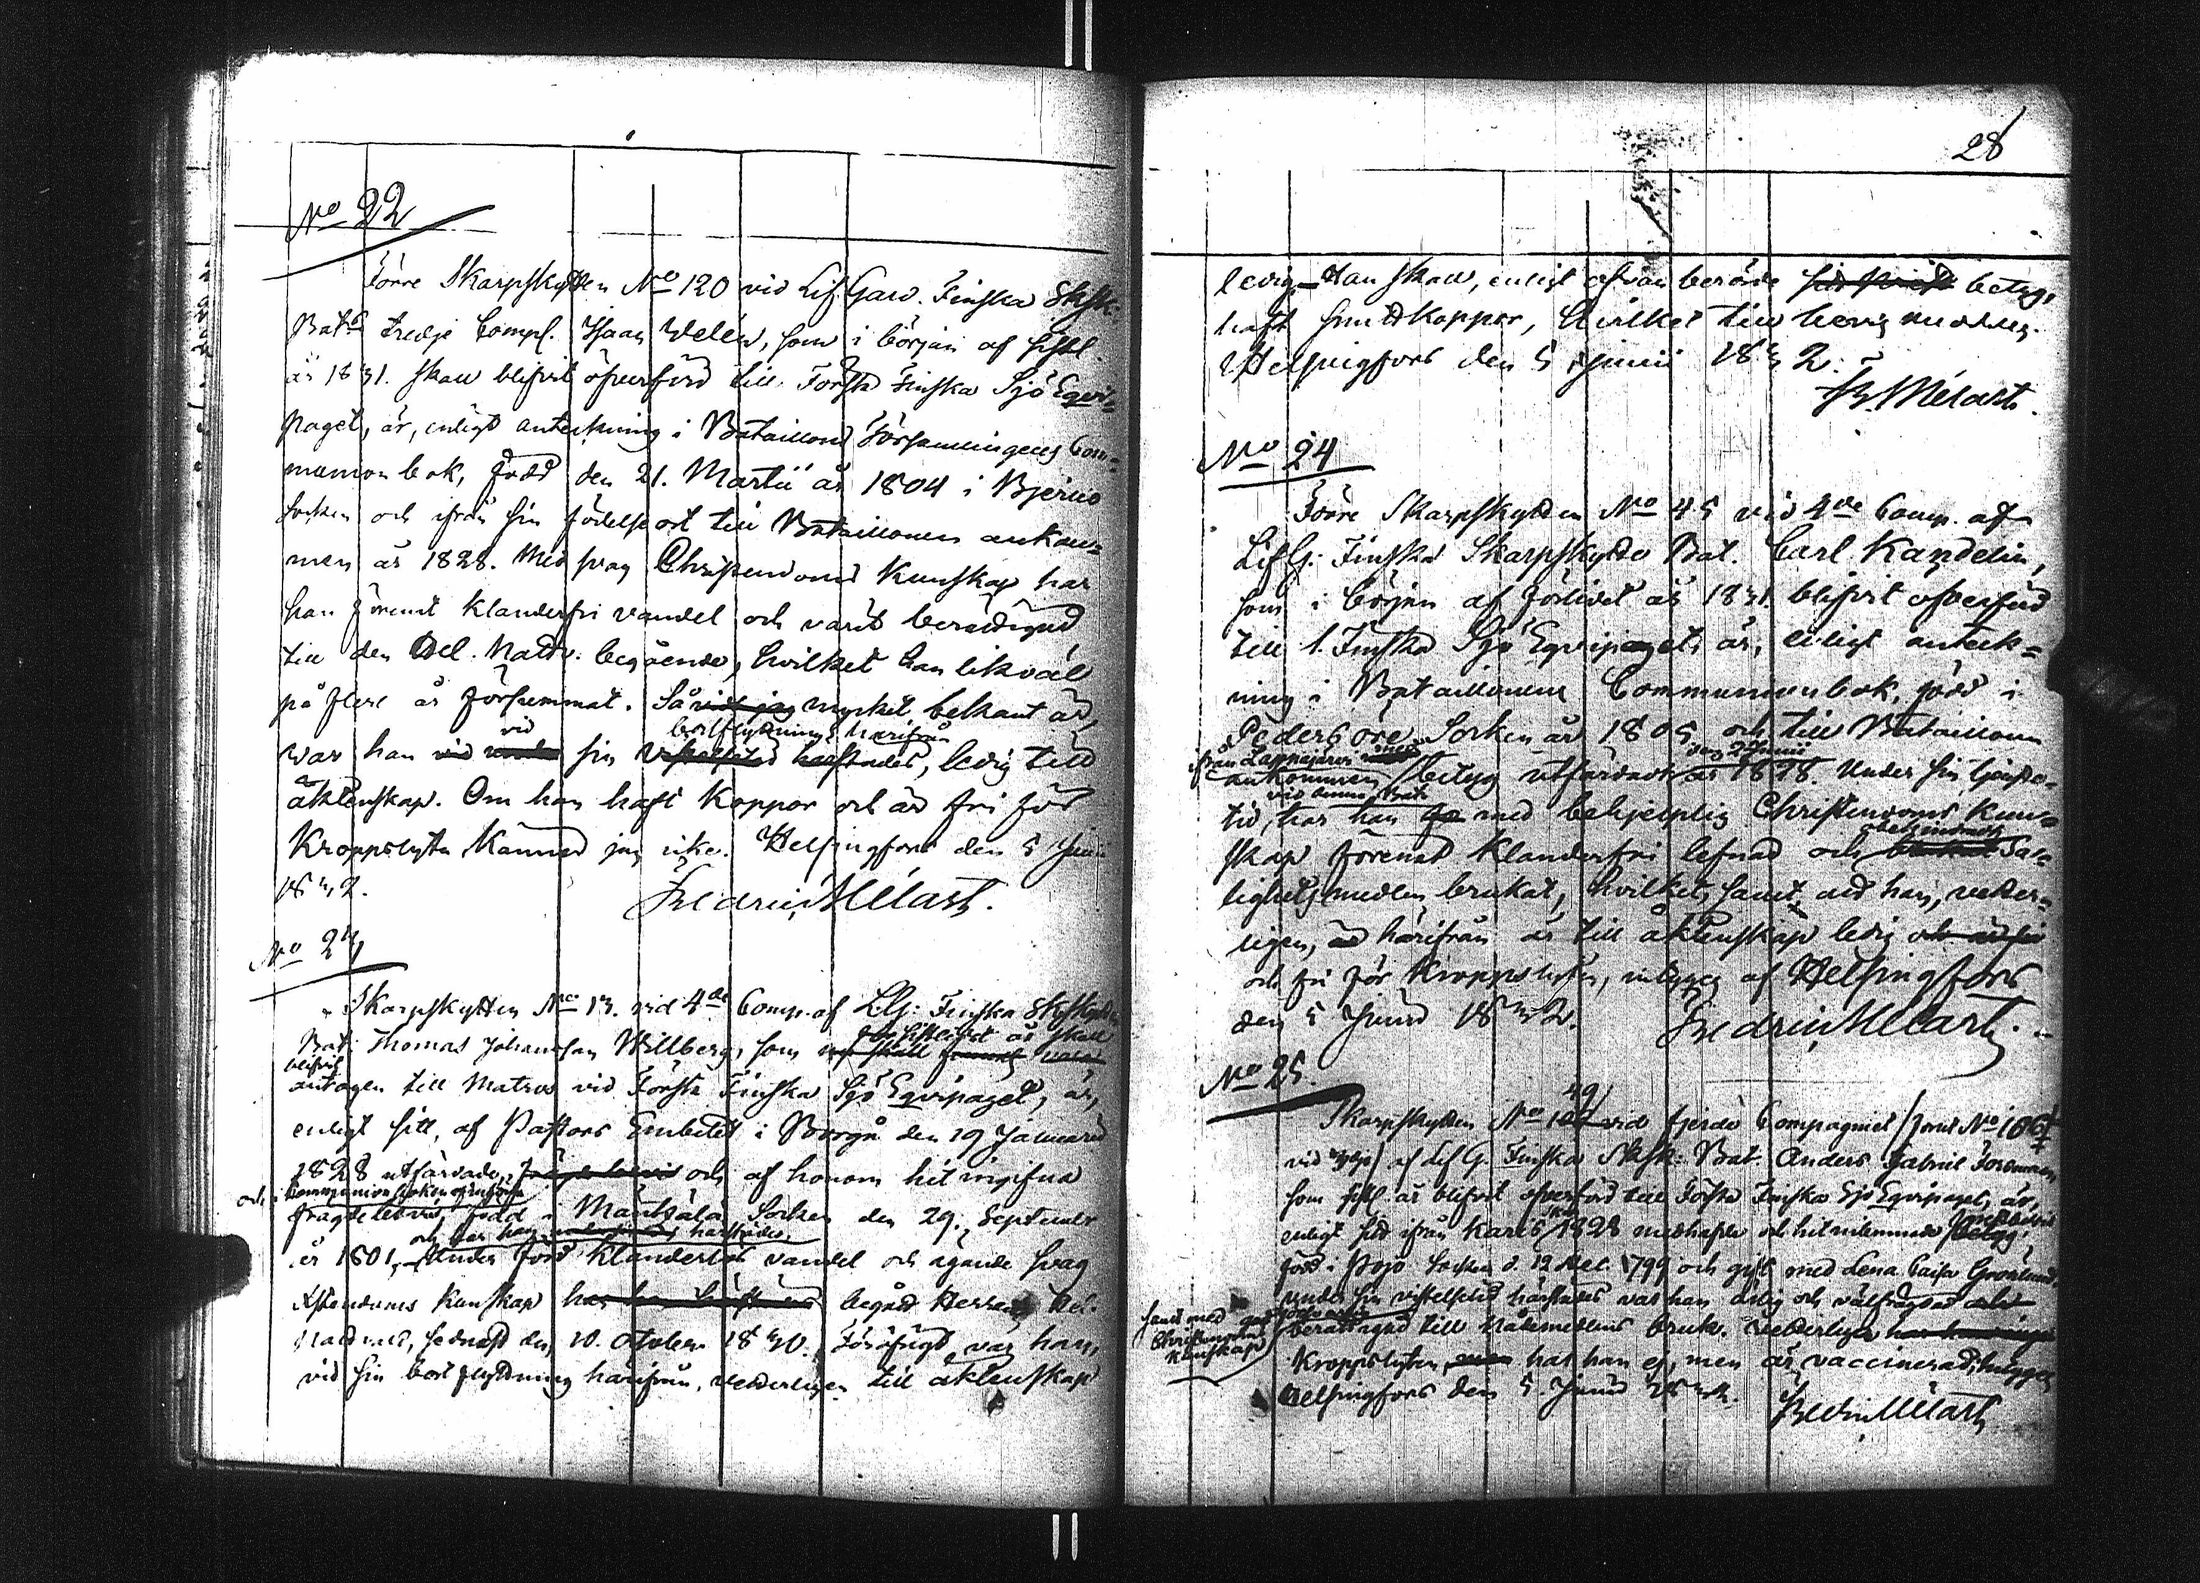 No 22
Förre Skarpskytten No 120 vid Lif Gard. Finska Skfsk.
Bat. tredje Comp. Isaac Velén, som i början af sistl.
år 1831. skall blifvit öfverförd till Första Finska Sjö Eqvi-
paget, är, enligt anteckning i Bataillons Församlingens Com-
munionbok, född den 21. Martii år 1804 i Bjerno
Socken och ifrån sin födelseort till Bataillonen ankom-
men år 1828. Med svag Christendoms Kunskap har
han förent klanderfri vandel och varit berättigad
till den Hel. Nattv. begående, hvilket han likväl
på flere år försummat. Så vidt jag mycket bekant är,
vid bortflyttning härifrån
var han vid sin härstädes, ledig till
äktenskap. Om han haft Koppor och är fri för
Kroppslyte känner jag icke. Helsingfors den 5 Junii
1832.
Fredric Mélart.
No 23
Skarpskytten No 13. vid 4de Comp. af L.G. Finska Skfsk
sistledit år skall
Bat. Thomas Johansson Willberg, som
blifvit
antagen till Matros vid Första Finska Sjö Eqvipaget, är,
enligt sitt, af Pastors Embetet i Borgå den 19 Januarii
1828 utfärdade, och af honom hit ingifna
och i Communionboken
frägdebevis, född i Mäntsälä Socken den 29. September
och har han härstädes
år 1801, Under fördt klanderlös vandel och ägande svag
Xstendoms kunskap begådt Herrans Hel.
Nattvard, sednast den 10. October 1830. Försöfrigt var han,
vid sin bortflyttning härifrån, vederligen till äktenskap
28
ledig. Han skall, enligt ofvan berörde betyg,
haft Smittkoppor, hvilket till bevis meddelas.
Helsingfors den 5 Junii 1832.
Fr. Mélart.
No 24
Förre Skarpskytten No 45 vid 4de Comp. af
Lif G. Finska Skarpskytte Bat. Carl Kandelin,
som i början af förlidet år 1831. blifvit öfverförd
till 1. Finska Sjö Eqvipaget, är, enligt anteck-
ning i Bataillonens Communionbok, född i
Pedersöre Socken år 1805 och till Bataillonen
från Lappajärvi med dag 2 Junii
ankommen betyg utfärdadt år 1828. Under sin tjenste-
vid denna Bat.
tid, har han med behjelplig Christendoms Kun-
skap förenat klanderfri lefnad och Sa-
lighetsmedlen brukat, hvilket, samt att han, veder-
ligen, härifrån är till äktenskap ledig
och fri för Kroppslyten, intygas af Helsingfors
den 5 Junii 1832. Fredric Mélart.
No 25.
49
Skarpskytten No vid fjerde Compagniet /förut No 106
vid af Lif G. Finska Skfsk. Bat. Anders Gabriel Forsman
som sistl. år blifvit öfverförd till Första Finska Sjö Eqvipaget, är,
enligt sitt ifrån Karis 1828 medhafda och hit inlemnade
född i Pojo Socken d. 12 Dec. 1799 och gift med Lena Caisa Grönlund,
under sin vistelsetid härstädes var han ärlig och välfrägdad
samt med god
Christendoms
Kunskap
berättigad till Nådemedlens bruk. Vederligen
Kroppslyten har han ej, men är vaccinerad; intygas
Helsingfors den 5. Junii 1832.
Fredric Mélart